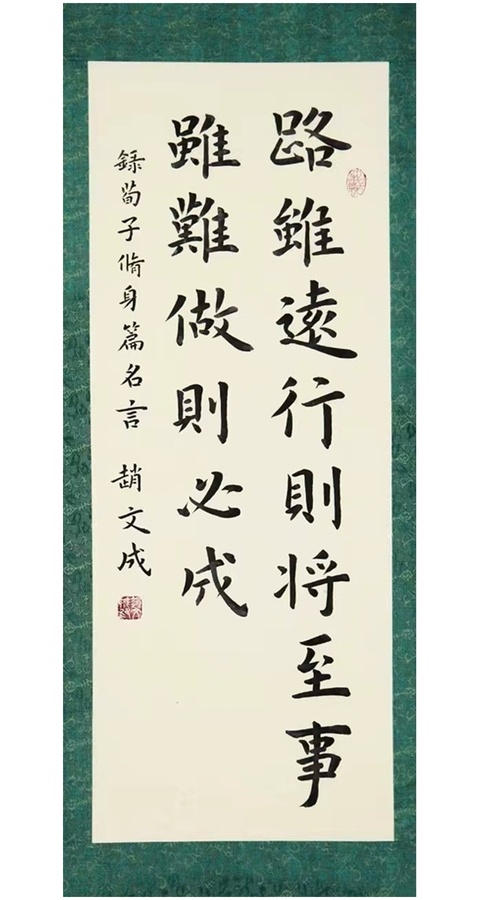 路雖遠行則将至事
雖難做則必成
錄荀子脩身篇名言 趙文成